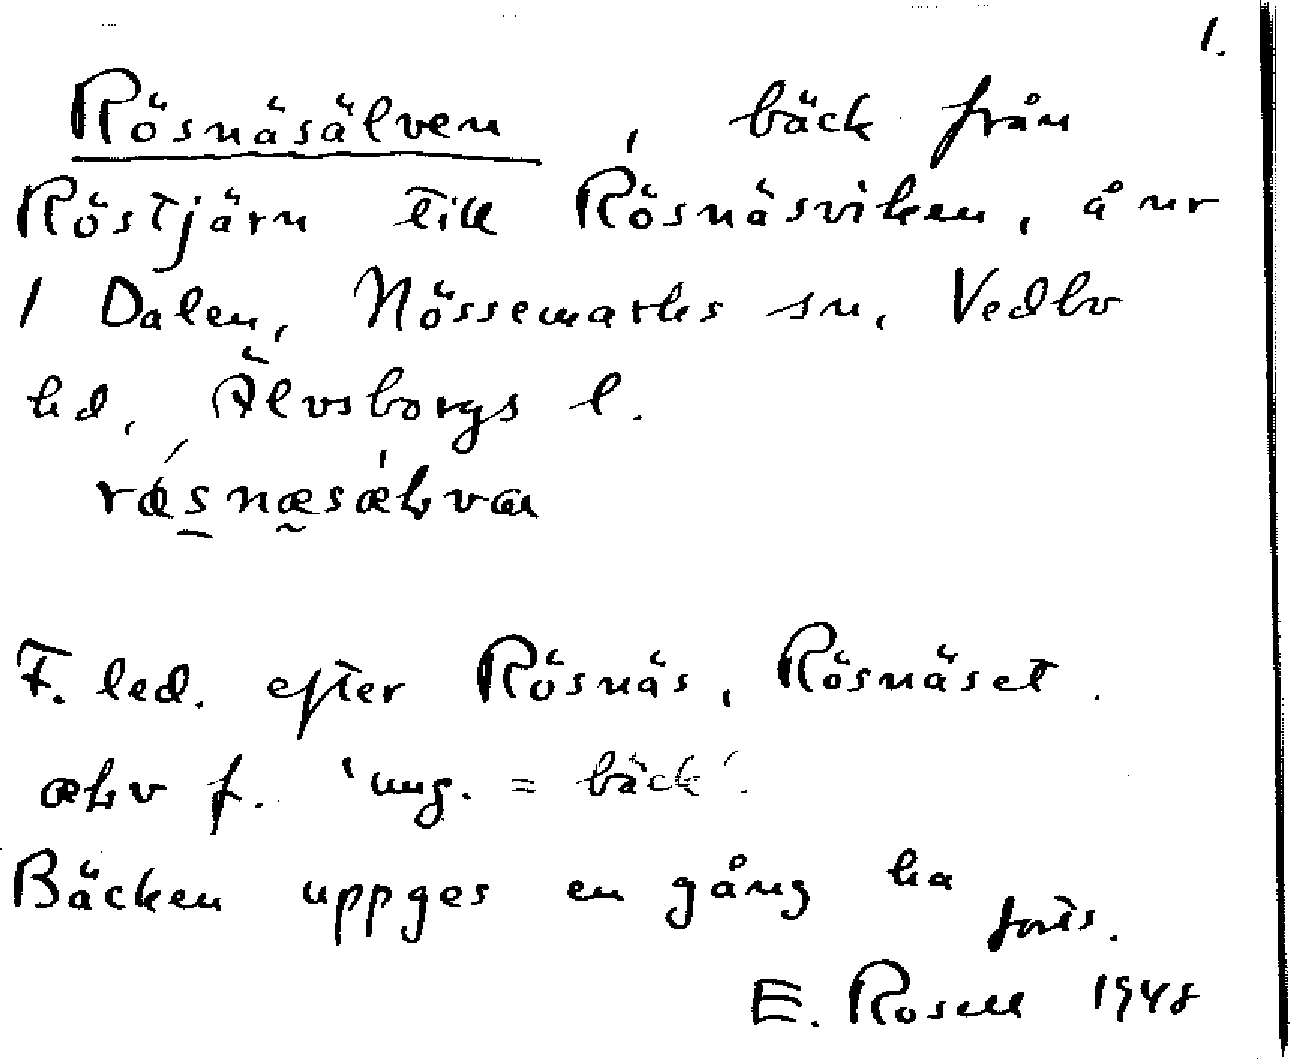 1.
Rösnäsälven, bäck från
Röstjärn till Rösnäsviken, å nr
1 Dalen, Nössemarks sn, Vedbo
hd, Älvsborgs l.
F. led. efter Rösnäs, Rösnäset.
f. 'ung. = bäck'.
Bäcken uppges en gång ha
forts.
E. Rosell 1948